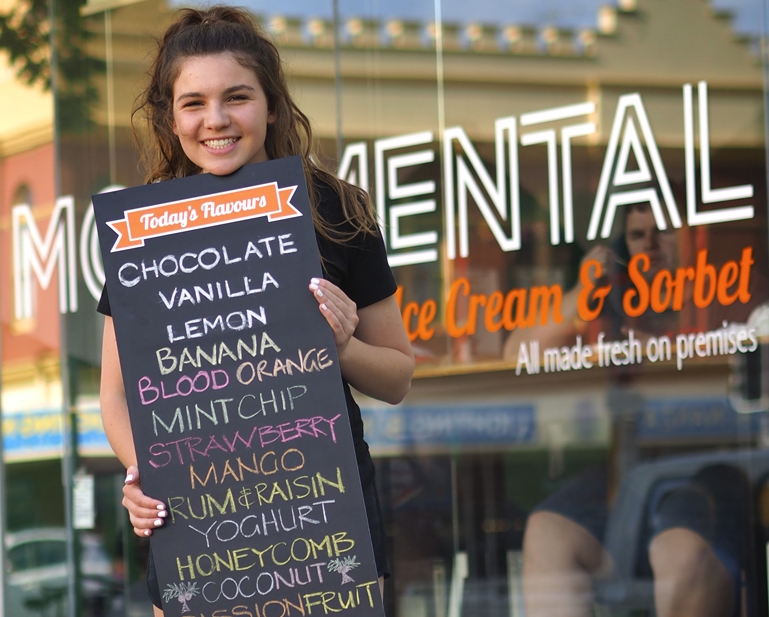 Today's Flavours
CHOCOLATE
VANILLA
LEMON
BANANA
BLOOD ORANGE
MINT CHIP
STRAWBERRY
MANGO
RUM & RAISIN
YOGHURT
HONEYCOMB
COCONUT
PASSIONFRUIT
MO MENTAL
Ice Cream & Sorbet
All made fresh on premises